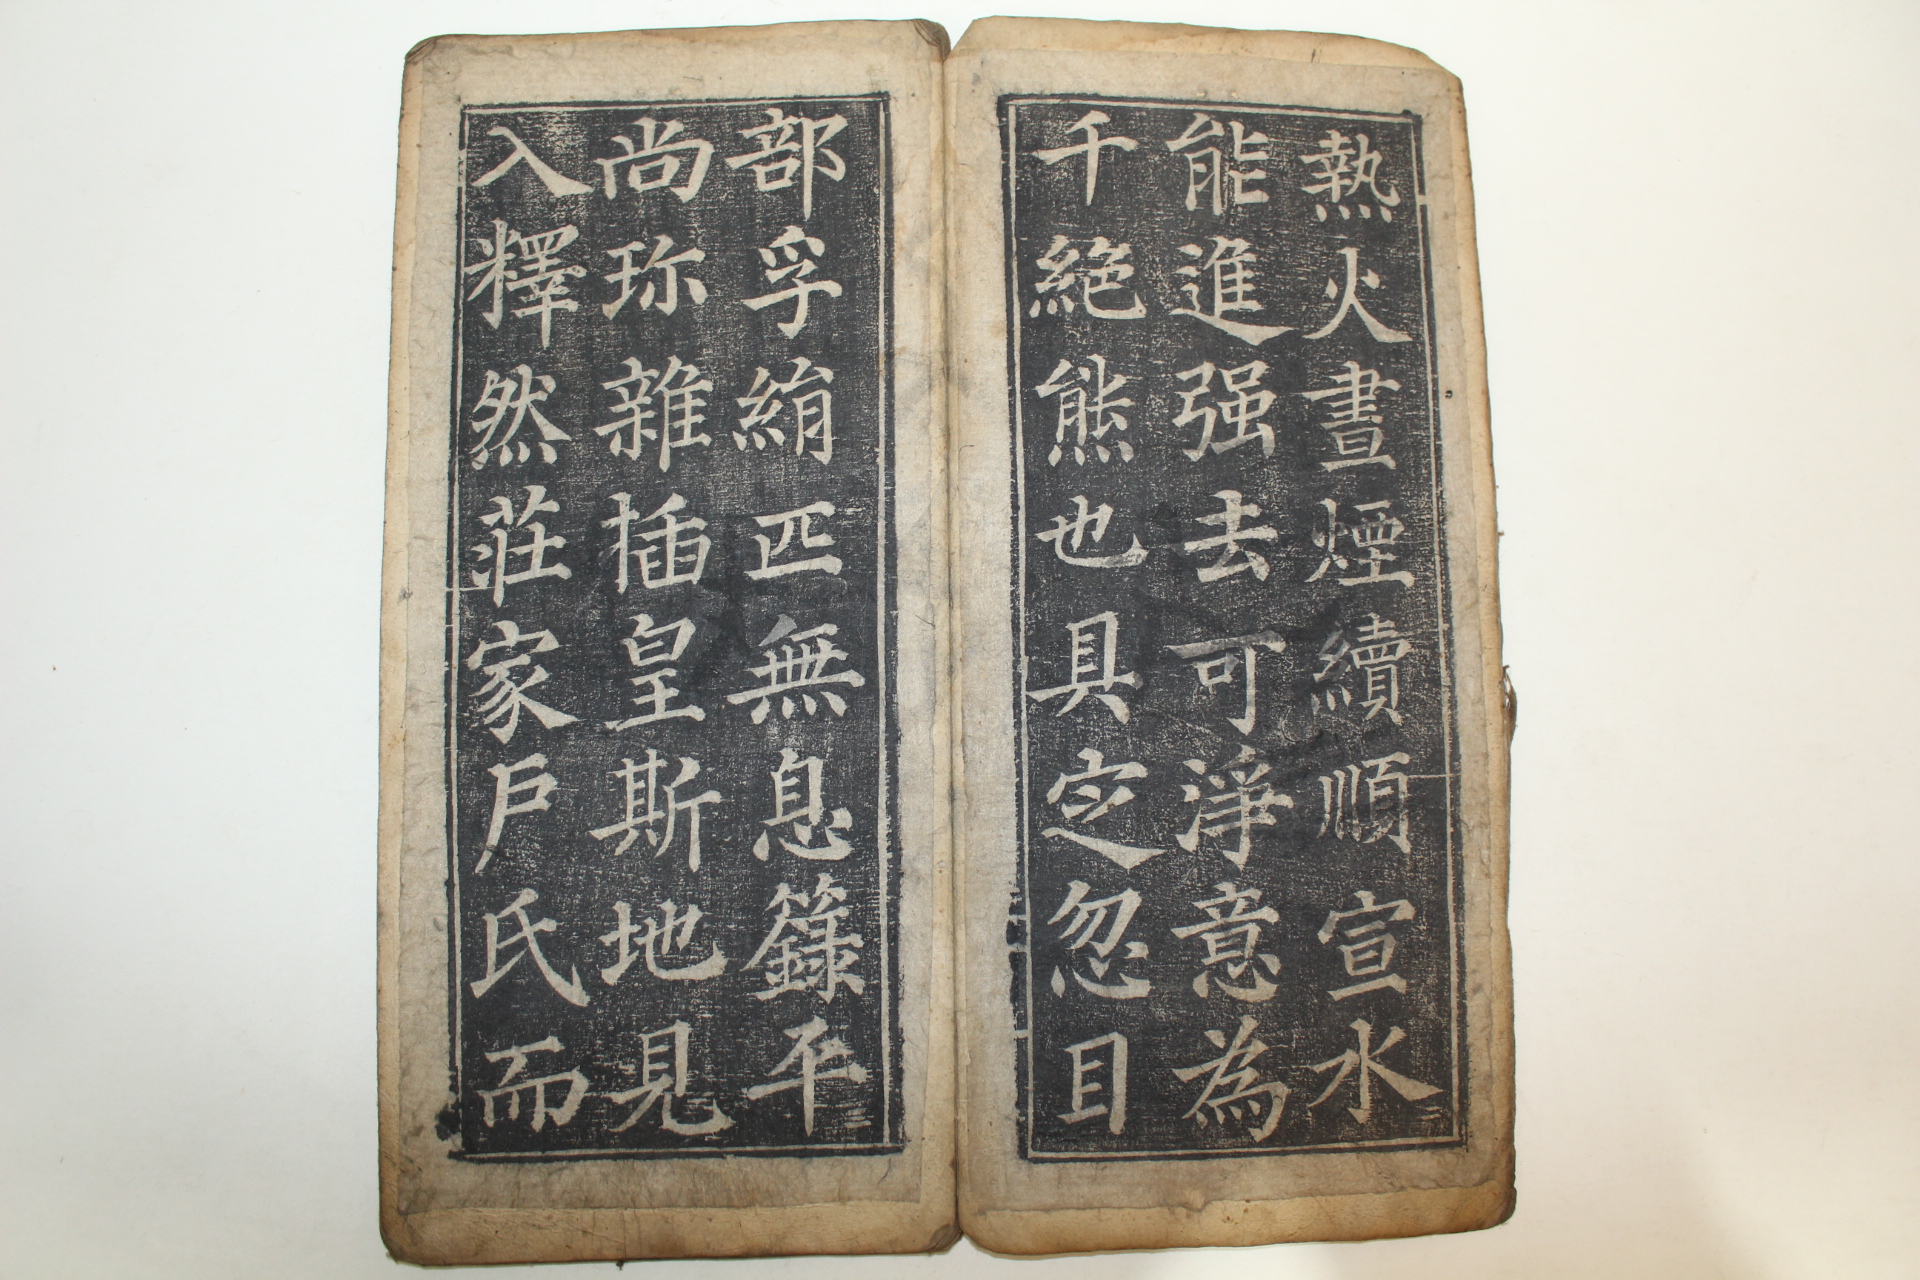 熱火晝煙續順宣水
能進强去可淨意為
千絕熊也具定忽目
部孚絹匹無息籙平
尚珎雜插皇斯地見
入釋然莊家戶氏而